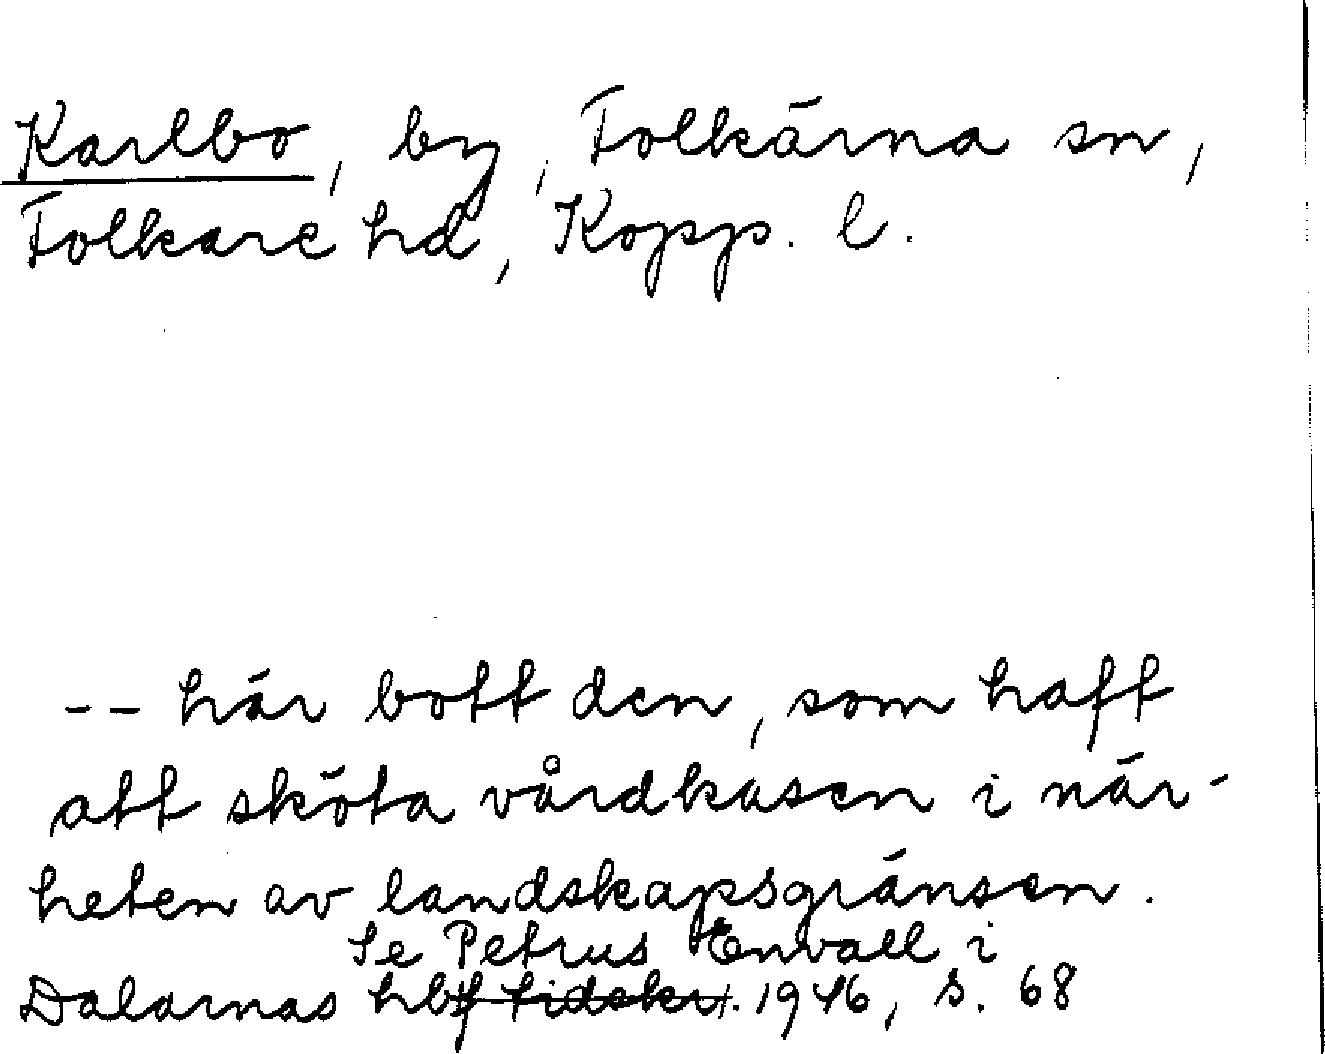 Karlbo, by, Folkärna sn,
Folkare hd, Kopp. l.
-- här bott den, som haft
att sköta vårdkasen i när-
heten av landskapsgränsen.
Se Petrus Envall i
Dalarnas hbf tidskr. 1946, s. 68